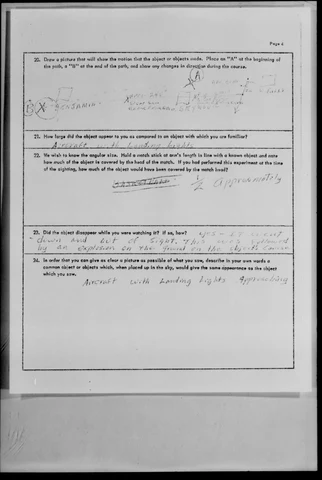 Page 6
20. Draw a picture that will show the motion that the object or objects made. Place an "A" at the beginning of
the path, a "B" at the end of the path, and show any changes in direction during the course.
A
B X BENJAMIN
21. How large did the object appear to you as compared to an object with which you are familiar?
Aircraft with Landing lights
22. We wish to know the angular size. Hold a match stick at arm's length in line with a known object and note
how much of the object is covered by the head of the match. If you had performed this experiment at the time
of the sighting, how much of the object would have been covered by the match head?
1/2 Approximately
23. Did the object disappear while you were watching it? If so, how? YES - IT went
down and out of sight. This was followed
by an explosion on the ground
24. In order that you can give as clear a picture as possible of what you saw, describe in your own words a
common object or objects which, when placed up in the sky, would give the same appearance as the object
which you saw.
Aircraft with Landing lights Approaching